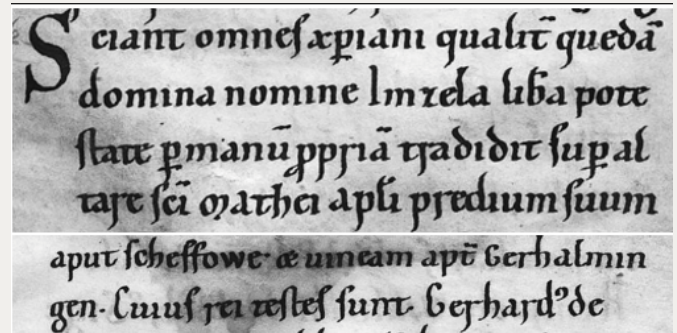 Sciant omnes xp̄iani qualit̄ quedā
domina nomine Imzela lib̄a pote
state ꝑ manū ꝓpriā tradidit suꝑ al
tare sc̄i Mathei apl̄i predium suum
aput scheffowe · æ uineam apt̄ Gerhalmin
gen · Cuius rei testes sunt · Gerhardꝰ de